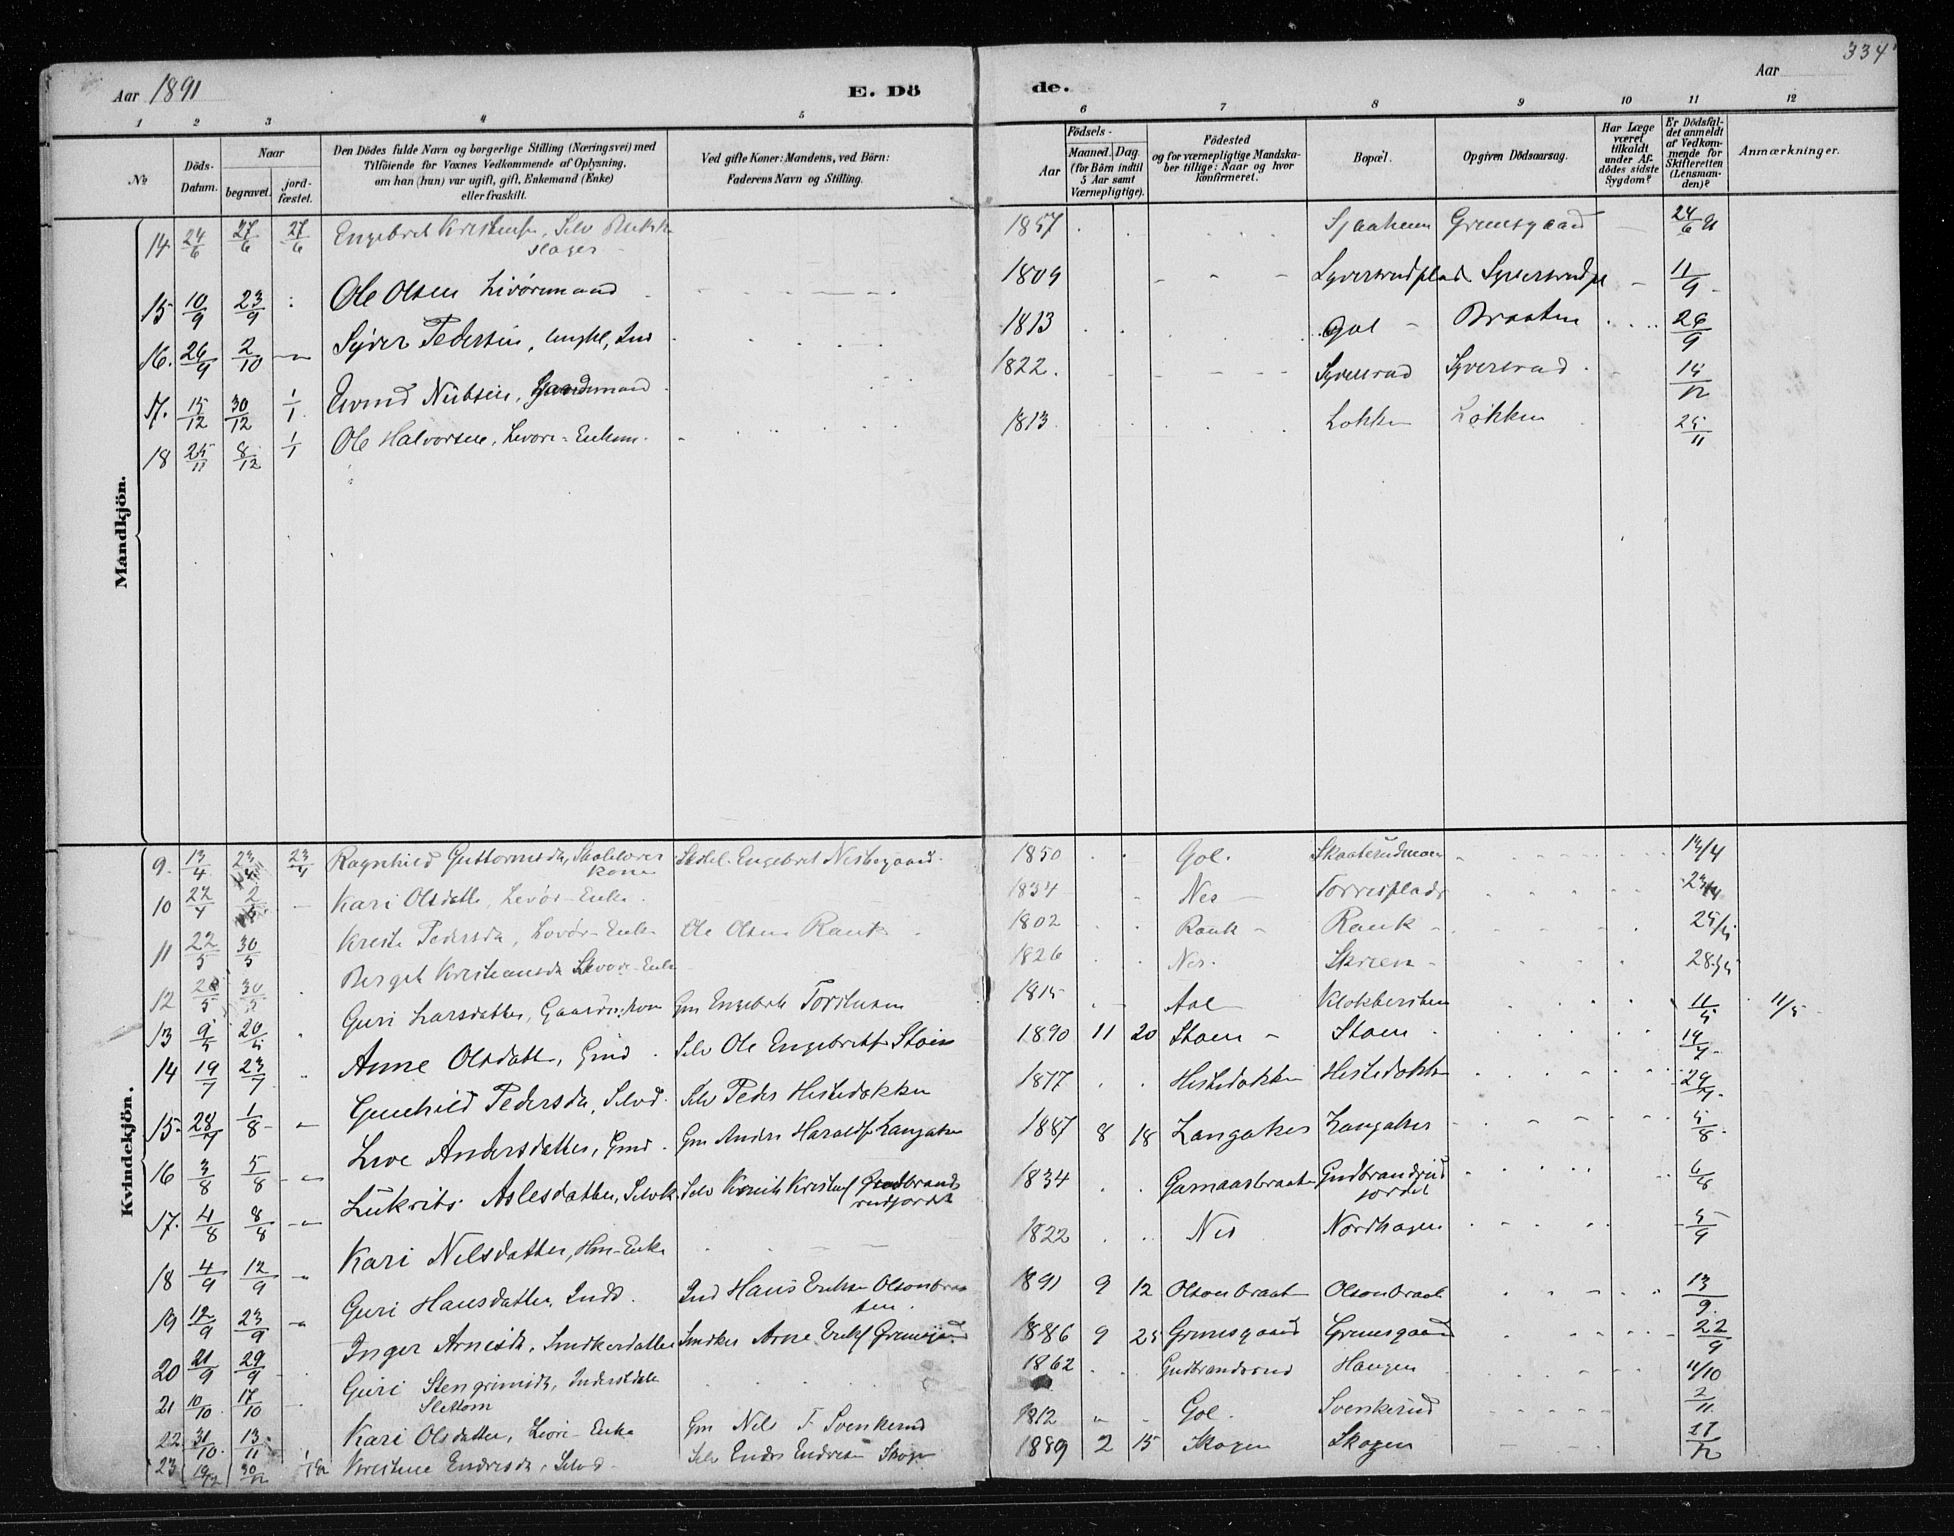 334
Aar 1891 E. Dö de. Aar
1 2 3 4 5 6 7 8 9 10 11 12
No Döds-Datum. Naar begravet. jordfæstet. Den Dödes fulde Navn og borgerlige Stilling (Næringsvei) med Tilföiende for Voxnes Vedkommende af Oplysning, om han (hun) var ugift, gift, Enkemand (Enke) eller fraskilt. Ved gifte Koner: Mandens, ved Börn: Faderens Navn og Stilling. Aar Födsels- Maaned. Dag. (for Börn indtil 5 Aar samt Værnepligtige). Födested og for værnepligtige Mandskaber tillige: Naar og hvor konfirmeret. Bopæl. Opgiven Dödsaarsag. Har Læge været tilkaldt under Afdödes sidste Sygdom? Er Dödsfaldet anmeldt af Vedkommende for Skifteretten (Lensmanden)? Anmærkninger.
Mandkjön.
14 24/6 27/6 27/6 Engebret Selv 1857 Grimsgaard 24/6
slager
15 10/9 23/9 Ole Olsen Livöremand 1809 Syversrudplads Syversrudpl 11/9
16. 26/9 2/10 Syver Pedersen, 1813 Gol Braaten 26/9
17. 15/12 30/12 1/1 Eivind Nubsen, Gaardmand 1822. Syversrud Syversrud
18 25/11 8/12 1/1 Ole Halvorsen, Levöre-Enkem. 1813 Lökken Lökken 25/11
Kvindekjön.
9. 13/4 23/4 23/4 Ragnhild Guttormsda, Skolelærer Engebret Nesbegaard 1850 Gol. 13/4
kone
10 22/4 Kari Olsdatte, Levör-Enke. 1834 Nes Torresplads
11 22/5 30/5 Pedersda, Levör-Enke Ole Olsen Rauk 1802 Rauk Rauk 25/5
12 30/5 Berget Kristiansda 1826 Nes. Skreen 28/5
13 9/5 20/5 Guri Larsdatter, Gm Engebret Torstensen 1815 Aal Klokkersteen 11/5 11/5
14 19/7 23/7 Anne Olsdatte, Gmd Selv Ole Engebretsf Stöen 1890 11 20 Stoen Stoen 19/7
15 28/7 1/8 Gunhild Pedersda, Selvd. Selv Peder Heslidokken 1877 Heslidokken 29/7
16 3/8 5/8 Live Andersdatter, Gmd. Gm Anders Haraldsf Langaker 1887 8 18 Langaker Langaker 5/8
17. 4/8 8/8 Lukrits Aslesdatter, Selvk Selv Gudbrands 1834 Garnaasbraaten Gudbrandsrud 6/8
rudjordet jordet
18 4/9 12/9 Kari Nilsdatter, Hm-Enke 1822 Nes Nordhagen 5/9
19 12/9 23/9 Guri Hansdatter, Indd. Ind Hans Eriksen Olsonbraa 1891 9 12 Olsonbraat Olsonbraat 13/9
ten.
20 21/9 29/9 Inger Arnesda. Smdkerdatter Smdker Arne Eriksf Grimsgaard 1886 9 25 Grimsgaard Grimsgaard 22/9
21 10/10 17/10 Guri Stengrimsda, 1862 Gudbrandsrud Haugen 11/10
Slettom
22 31/10 13/11 Kari Olsdatter, Levöre-Enke Gm Nels T. Svenkerud 1812 Gol. Svenkerud 2/11
23 19/12 30/12 Kristine Endresda, Selvd. Selv Endre Endresen Skogen 1889 2 15 Skogen Skogen